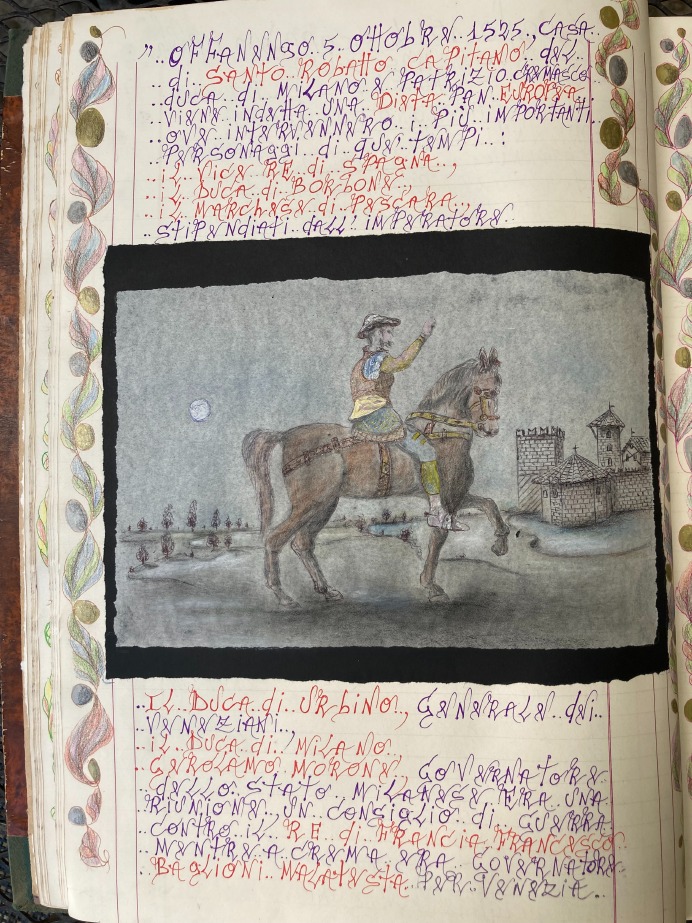 „.. OFFANENGO 5.. OttOBRE.. 1525., CASA..
.. di.. SANTO.. ROBAttO.. CAPITANO, dEL
dUCA.. di.. MILANO E PATRIZIO CREMASCO
VIENE INdEttA UNA.. DIETA.. PAN.. EUROPEA,
OVE INtERVENNERO.. i.. PIÙ.. IMPORTANTI..
PERSONAGGI.. di.. QUEi.. tEMPI.. :
.. iL.. VICE.. RE.. di.. SPAGNA..,
.. iL.. DUCA.. di.. BORBONE..,
.. iL.. MARCHESE.. di.. PESCARA..,
.. StIPENdIAti.. dALL'.. IMPERATORE..
.. IL.. DUCA.. di.. URBINO.., GENERALE.. dEi..
.. VENEZIANI..,
.. iL.. DUCA.. di.. MILANO..
.. GEROLAMO.. MORONE, GOVERNAtORE
.. dELLO.. StAtO.. MILANESE ERA.. UNA
RIUNIONE.. UN.. CONSIGLIO.. di.. GUERRA
CONtRO.. iL.. RE.. di.. FRANCIA.. FRANCESCO
MENtRE A CREMA.. ERA.. GOVERNAtORE
BAGLIONI.. MALAtEStA.. PER.. VENEZIA..